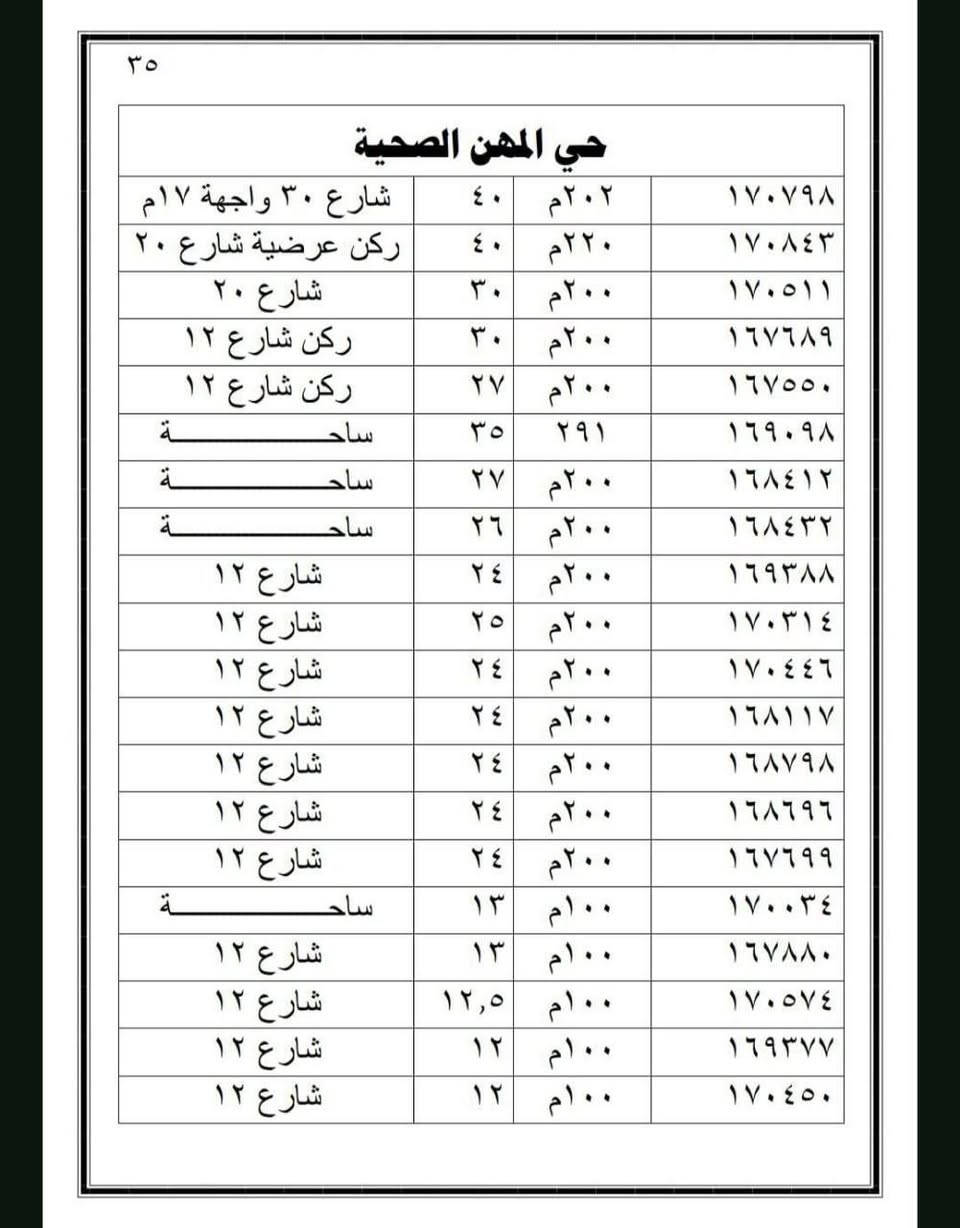 ٣٥
حي المهن الصحية
١٧٠٧٩٨ ٢٠٢م ٤٠ شارع ٣٠ واجهة ١٧م
١٧٠٨٤٣ ٢٢٠م ٤٠ ركن عرضية شارع ٢٠
١٧٠٥١١ ٢٠٠م ٣٠ شارع ٢٠
١٦٧٦٨٩ ٢٠٠م ٣٠ ركن شارع ١٢
١٦٧٥٥٠ ٢٠٠م ٢٧ ركن شارع ١٢
١٦٩٠٩٨ ٢٩١ ٣٥ ساحــــــــــــــــة
١٦٨٤١٢ ٢٠٠م ٢٧ ساحــــــــــــــــة
١٦٨٤٣٢ ٢٠٠م ٢٦ ساحــــــــــــــــة
١٦٩٣٨٨ ٢٠٠م ٢٤ شارع ١٢
١٧٠٣١٤ ٢٠٠م ٢٥ شارع ١٢
١٧٠٤٤٦ ٢٠٠م ٢٤ شارع ١٢
١٦٨١١٧ ٢٠٠م ٢٤ شارع ١٢
١٦٨٧٩٨ ٢٠٠م ٢٤ شارع ١٢
١٦٨٦٩٦ ٢٠٠م ٢٤ شارع ١٢
١٦٧٦٩٩ ٢٠٠م ٢٤ شارع ١٢
١٧٠٠٣٤ ١٠٠م ١٣ ساحــــــــــــــــة
١٦٧٨٨٠ ١٠٠م ١٣ شارع ١٢
١٧٠٥٧٤ ١٠٠م ١٢,٥ شارع ١٢
١٦٩٣٧٧ ١٠٠م ١٢ شارع ١٢
١٧٠٤٥٠ ١٠٠م ١٢ شارع ١٢